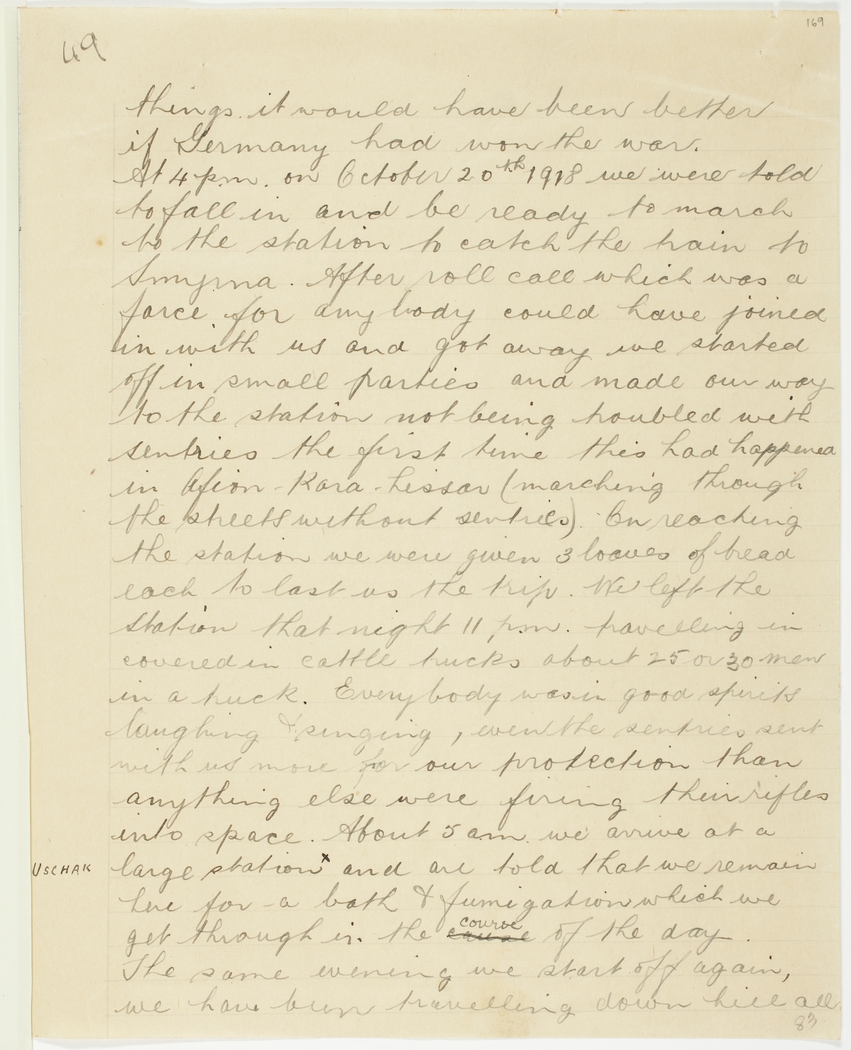 169
49
things. it would have been better
if Germany had won the war.
At 4 p.m. on October 20th 1918 we were told
to fall in and be ready to march
to the station to catch the train to
Smyrna. After roll call which was a
farce for any body could have joined
in with us and got away we started
off in small parties and made our way
to the station not being troubled with
sentries the first time this had happened
in Afion-Kara-hissar (marching through
the streets without sentries). On reaching
the station we were given 3 loaves of bread
each to last us the trip. We left the
station that night 11 p.m. travelling in
covered in cattle trucks about 25 or 30 men
in a truck. Everybody was in good spirits
laughing & singing, even the sentries sent
with us more for our protection than
anything else were firing their rifles
into space. About 5 am. we arrive at a
USCHAK large station x and are told that we remain
here for a bath & fumigation which we
get through in the cause course of the day.
The same evening we start off again,
we have been travelling down hill all
83